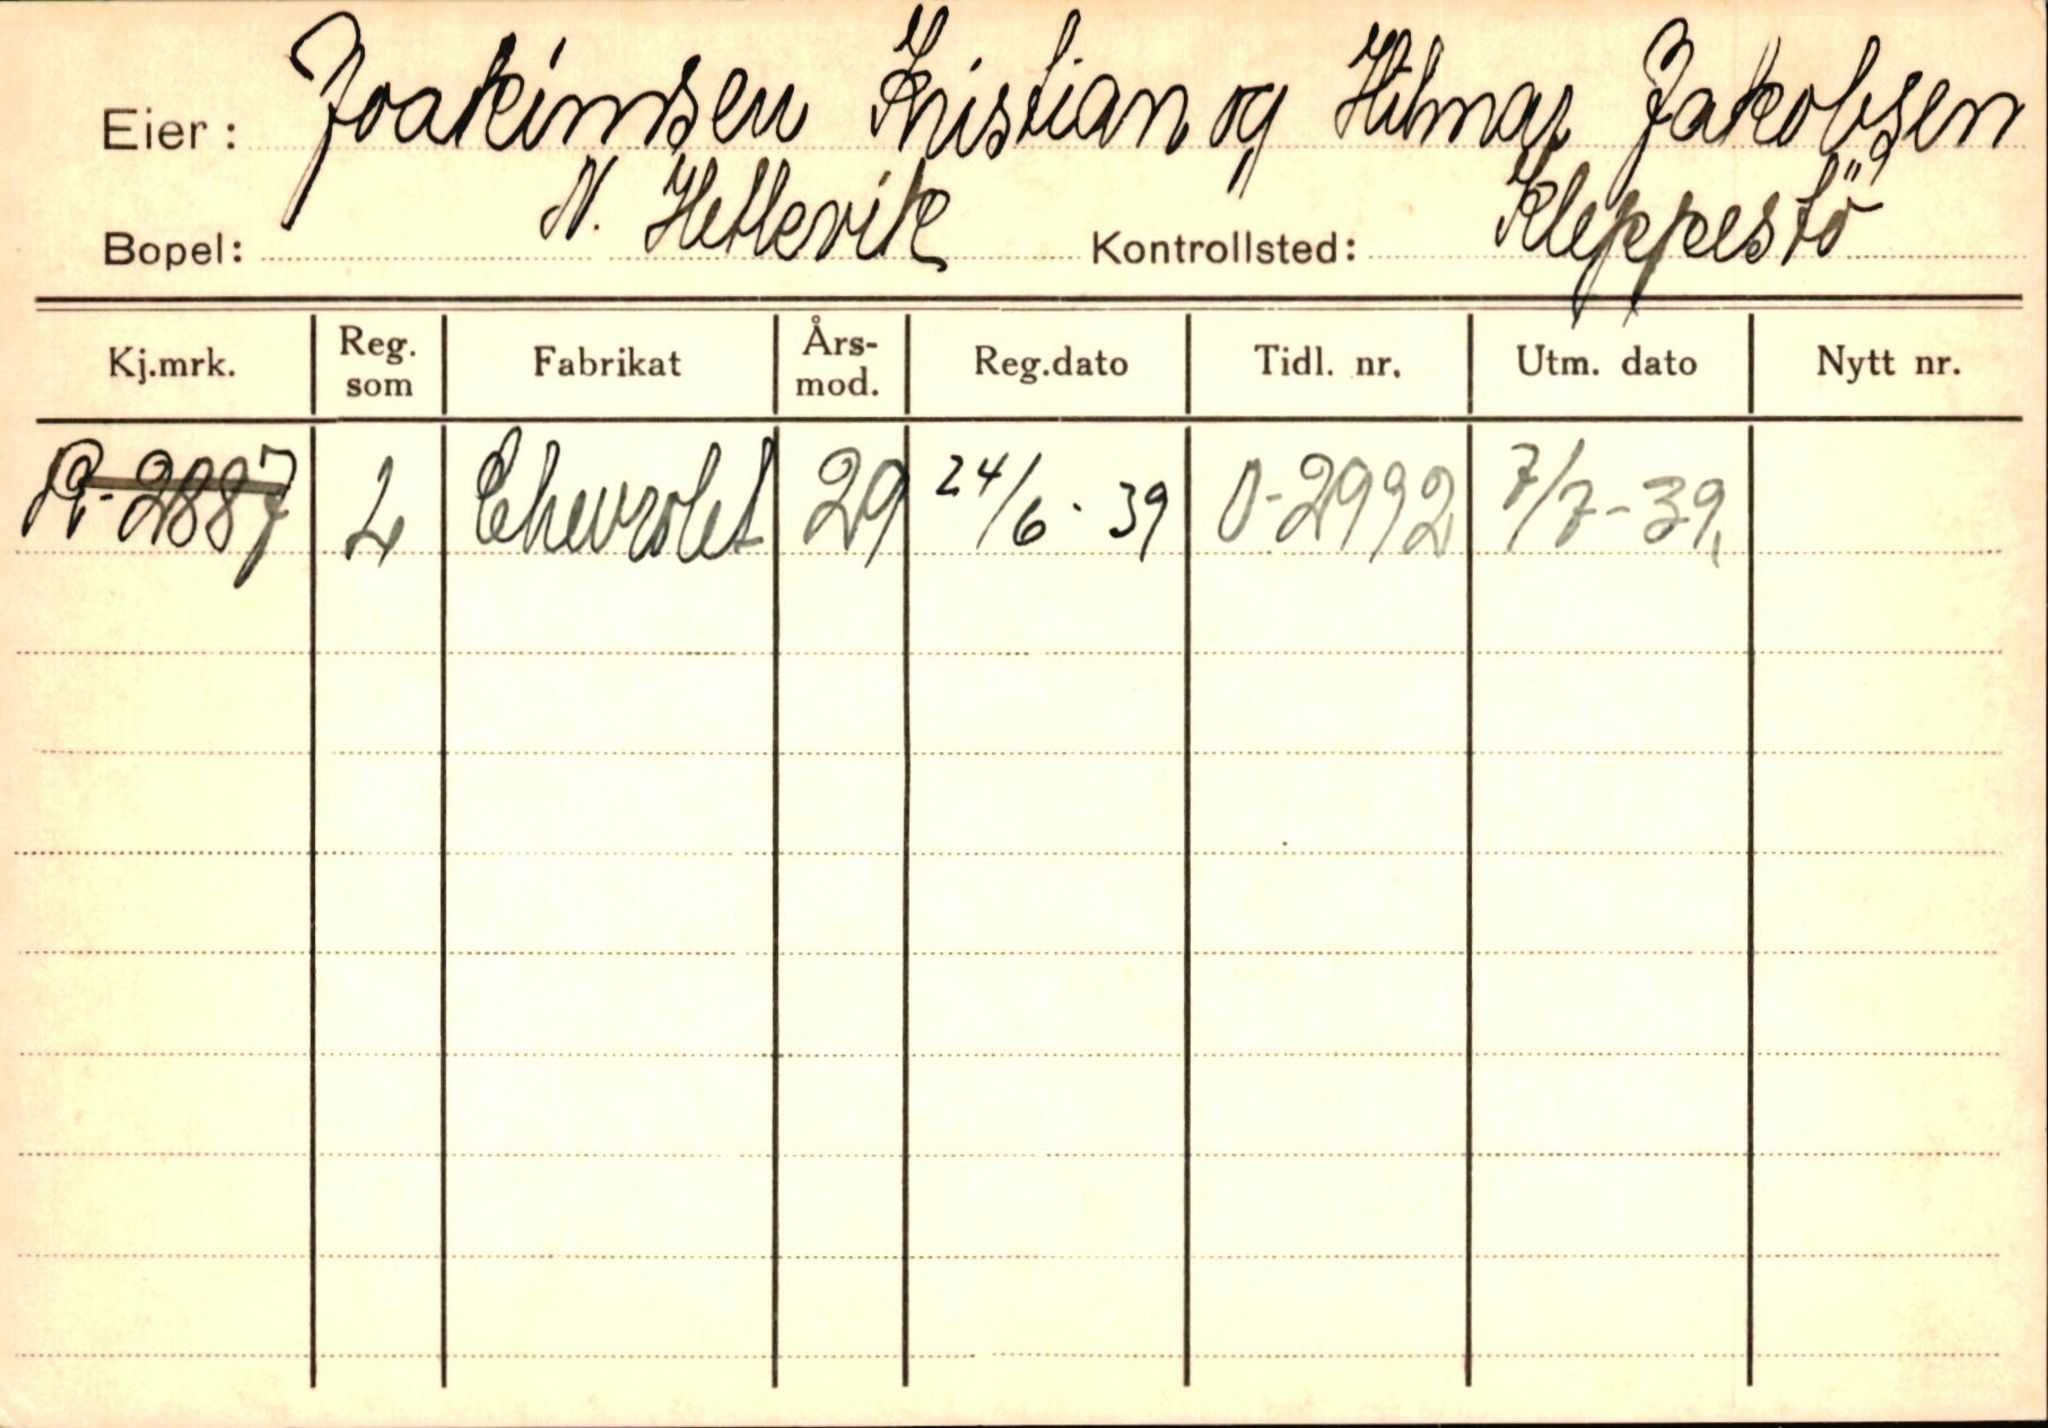 Eier: Joakimsen Kristian og Hilmar Jakobsen
Bopel: N. Hetlevik Kontrollsted: Kleppestö
Kj.mrk. Reg. som Fabrikat Års-mod. Reg.dato Tidl. nr. Utm. dato Nytt nr.
R-2887 L Chevrolet 29 24/6 - 39 O-2992 7/7-39.